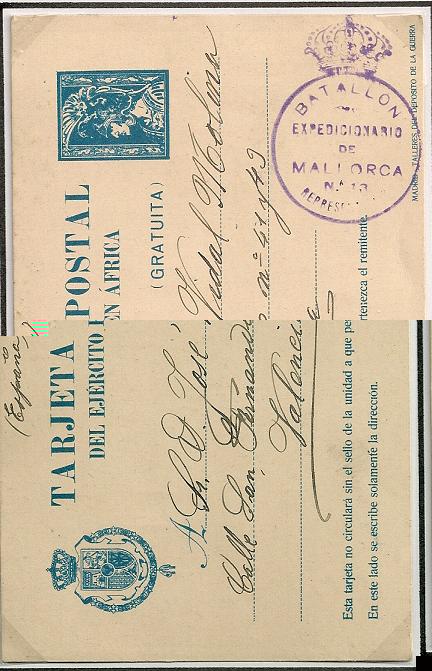 (España)
TARJETA POSTAL
DEL EJERCITO EN AFRICA
(GRATUITA)
A Sr. D. José Vidal Molina
Calle San Fernando nº 41 y 43
Valencia
BATALLON
EXPEDICIONARIO
DE
MALLORCA
N. 13
Esta tarjeta no circulará sin el sello de la unidad a que pertenezca el remitente.
En este lado se escribe solamente la dirección.
MADRID TALLERES DEL DEPOSITO DE LA GUERRA